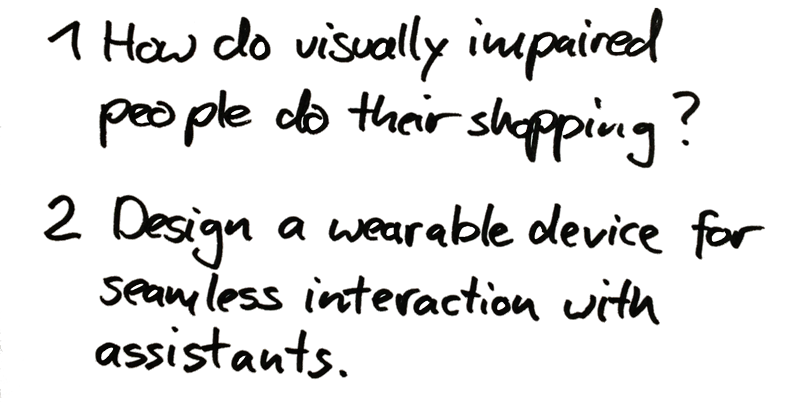 1 How do visually impaired
people do their shopping?
2 Design a wearable device for
seamless interaction with
assistants.